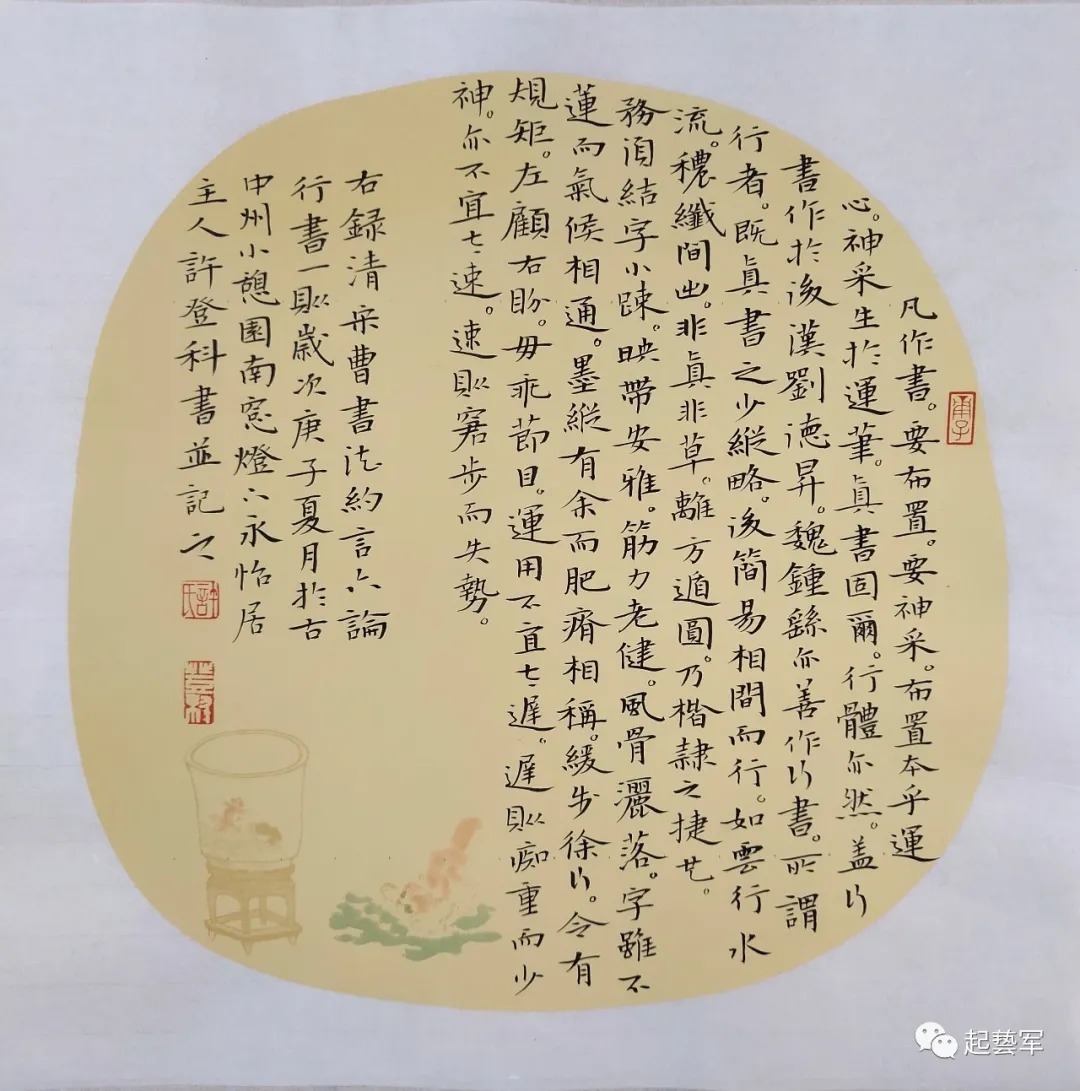 凡作書。要布置。要神采。布置本乎運
心。神采生於運筆。真書固爾。行體亦然。蓋行
書作於後漢劉德昇。魏鍾繇亦善作行書。所謂
行者。既真書之少縱略。後簡易相間而行。如雲行水
流。穠纖間出。非真非草。離方遁圓。乃楷隸之捷也。
務須結字小踈。映帶安雅。筋力老健。風骨灑落。字雖不
蓮而氣候相通。墨縱有余而肥瘠相稱。緩步徐行。令有
規矩。左顧右盼。毋乖節目。運用不宜太遲。遲則痴重而少
神。亦不宜太速。速則窘步而失勢。
右録清宋曹書法約言六論
行書一則歲次庚子夏月於古
中州小憩園南窓燈下永怡居
主人許登科書並記之
許氏
登科
庚子
起藝军